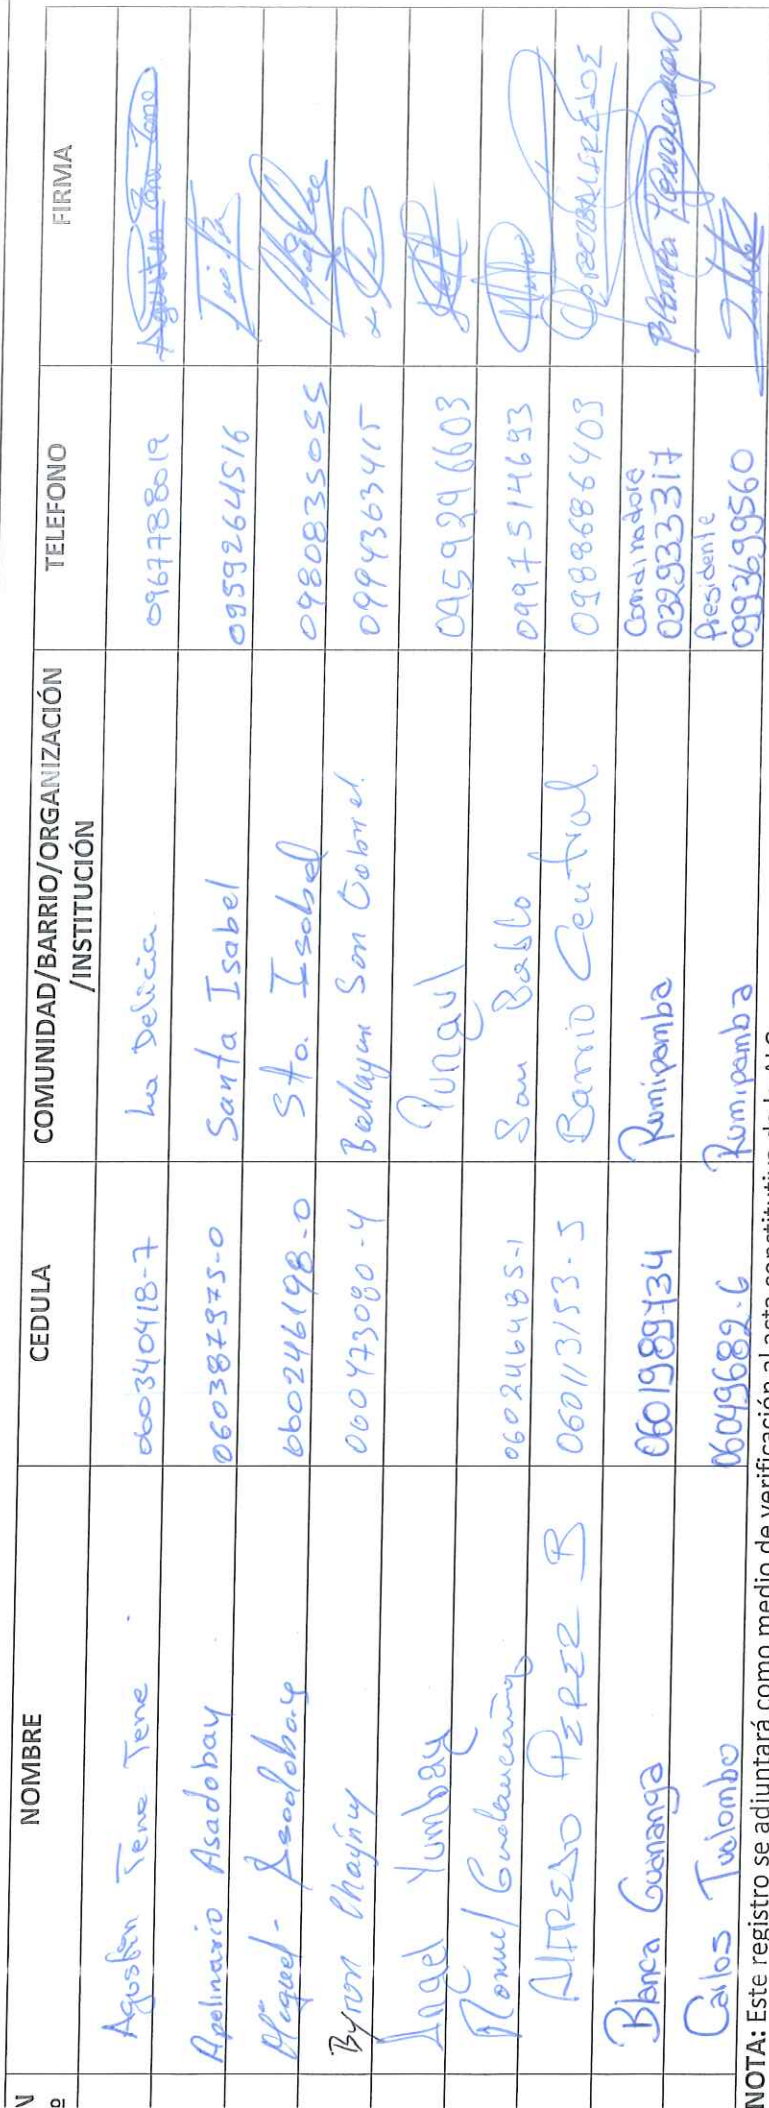 Nº NOMBRE CEDULA COMUNIDAD/BARRIO/ORGANIZACIÓN/INSTITUCIÓN TELEFONO FIRMA
Agustín Tene Tene 060340418-7 La Delicia 0967788019 Agustin Tene Tene
Apolinario Asadobay 060387975-0 Santa Isabel 0959264516
Miguel Asadobay 060246198-0 Sto. Isabel 0980835055
Byron Chajñay 060473080-4 San Gabriel. 0994363415
Angel Yumbay Pungul 0459296603
Manuel 060246485-1 San Pablo 0997514693
ALFREDO PEREZ B 060113153-5 Barrio Central 0988686403
Blanca Guananga 0601989734 Rumipamba Coordinadora 032933317 Blanca Guananga
Carlos Tualombo 06049682-6 Rumipamba Presidente 0993699560
NOTA: Este registro se adjuntará como medio de verificación al acta constitutiva de la ALC